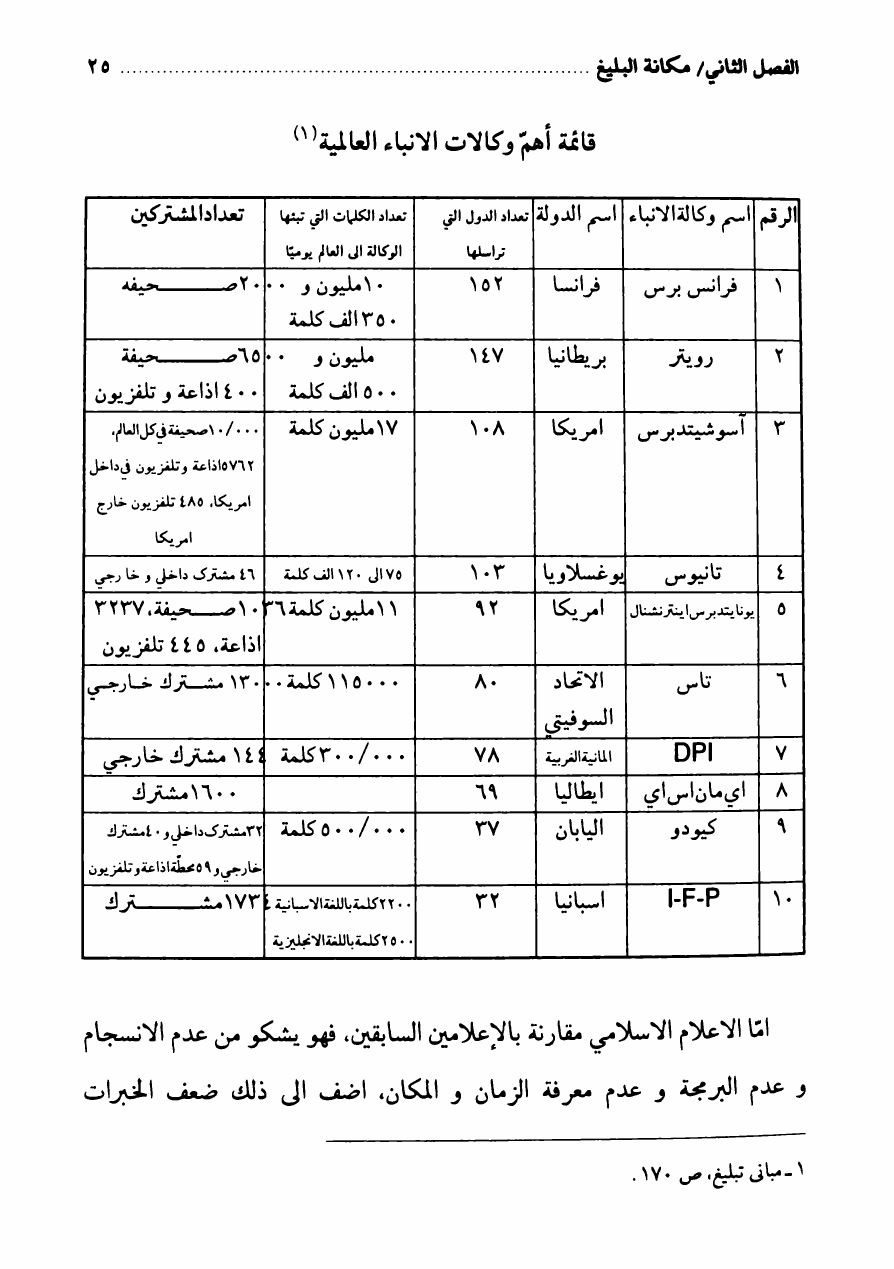 الفصل الثاني/ مكانة البليغ ........................................ ٢٥
قائمة أهمّ وكالات الانباء العالمية(١)
الرقم اسم وكالة الانباء اسم الدولة تعداد الدول التي تعداد الكلمات التي تبثها تعداد المشتركين
تراسلها الوكالة الى العالم يوميًا
١ فرانس برس فرانسا ١٥٢ ١٠ مليون و ٢٠٠٠ صحيفه
٣٥٠ الف كلمة
٢ رويتر بريطانيا ١٤٧ مليون و ٦٥٠٠ صحيفه
٥٠٠ الف كلمة ٤٠٠ اذاعة و تلفزيون
٣ آسوشيتدبرس امريكا ١٠٨ ١٧ مليون كلمة ١٠/٠٠٠ صحيفة في كل العالم،
٥٧٦٢ اذاعة و تلفزيون في داخل
امريكا، ٤٨٥ تلفزيون خارج
امريكا
٤ تانيوس يوغسلاويا ١٠٣ ٧٥ الى ١٢٠ الف كلمة ٤٦ مشترك داخلي و خارجي
٥ يونايتدبرس اينترنشنال امريكا ٩٢ ١١ مليون كلمة ١٠٣٦ صحيفة، ٣٢٣٧
اذاعة، ٤٤٥ تلفزيون
٦ تاس الاتحاد ٨٠ ١١٥٠٠٠ كلمة ١٣٠٠٠ مشترك خارجي
السوفيتي
٧ DPI المانية الغربية ٧٨ ٣٠٠/٠٠٠ كلمة ١٤٤ مشترك خارجي
٨ اي مان اس اي ايطاليا ٦٩ ١٦٠٠ مشترك
٩ كيودو اليابان ٣٧ ٥٠٠/٠٠٠ كلمة ٣٢ مشترك داخلي و ٤٠ مشترك
خارجي و ٥٩ محطّة اذاعة و تلفزيون
١٠ I-F-P اسبانيا ٣٢ ٢٢٠٠ كلمة باللغة الاسبانية ١٧٣٤ مشترك
٢٥٠٠ كلمة باللغة الانجليزية
امّا الاعلام الاسلامي مقارنة بالإعلامين السابقين، فهو يشكو من عدم الانسجام
و عدم البرمجة و عدم معرفة الزمان و المكان، اضف الى ذلك ضعف الخبرات
١ ـ مبانى تبليغ، ص ١٧٠.